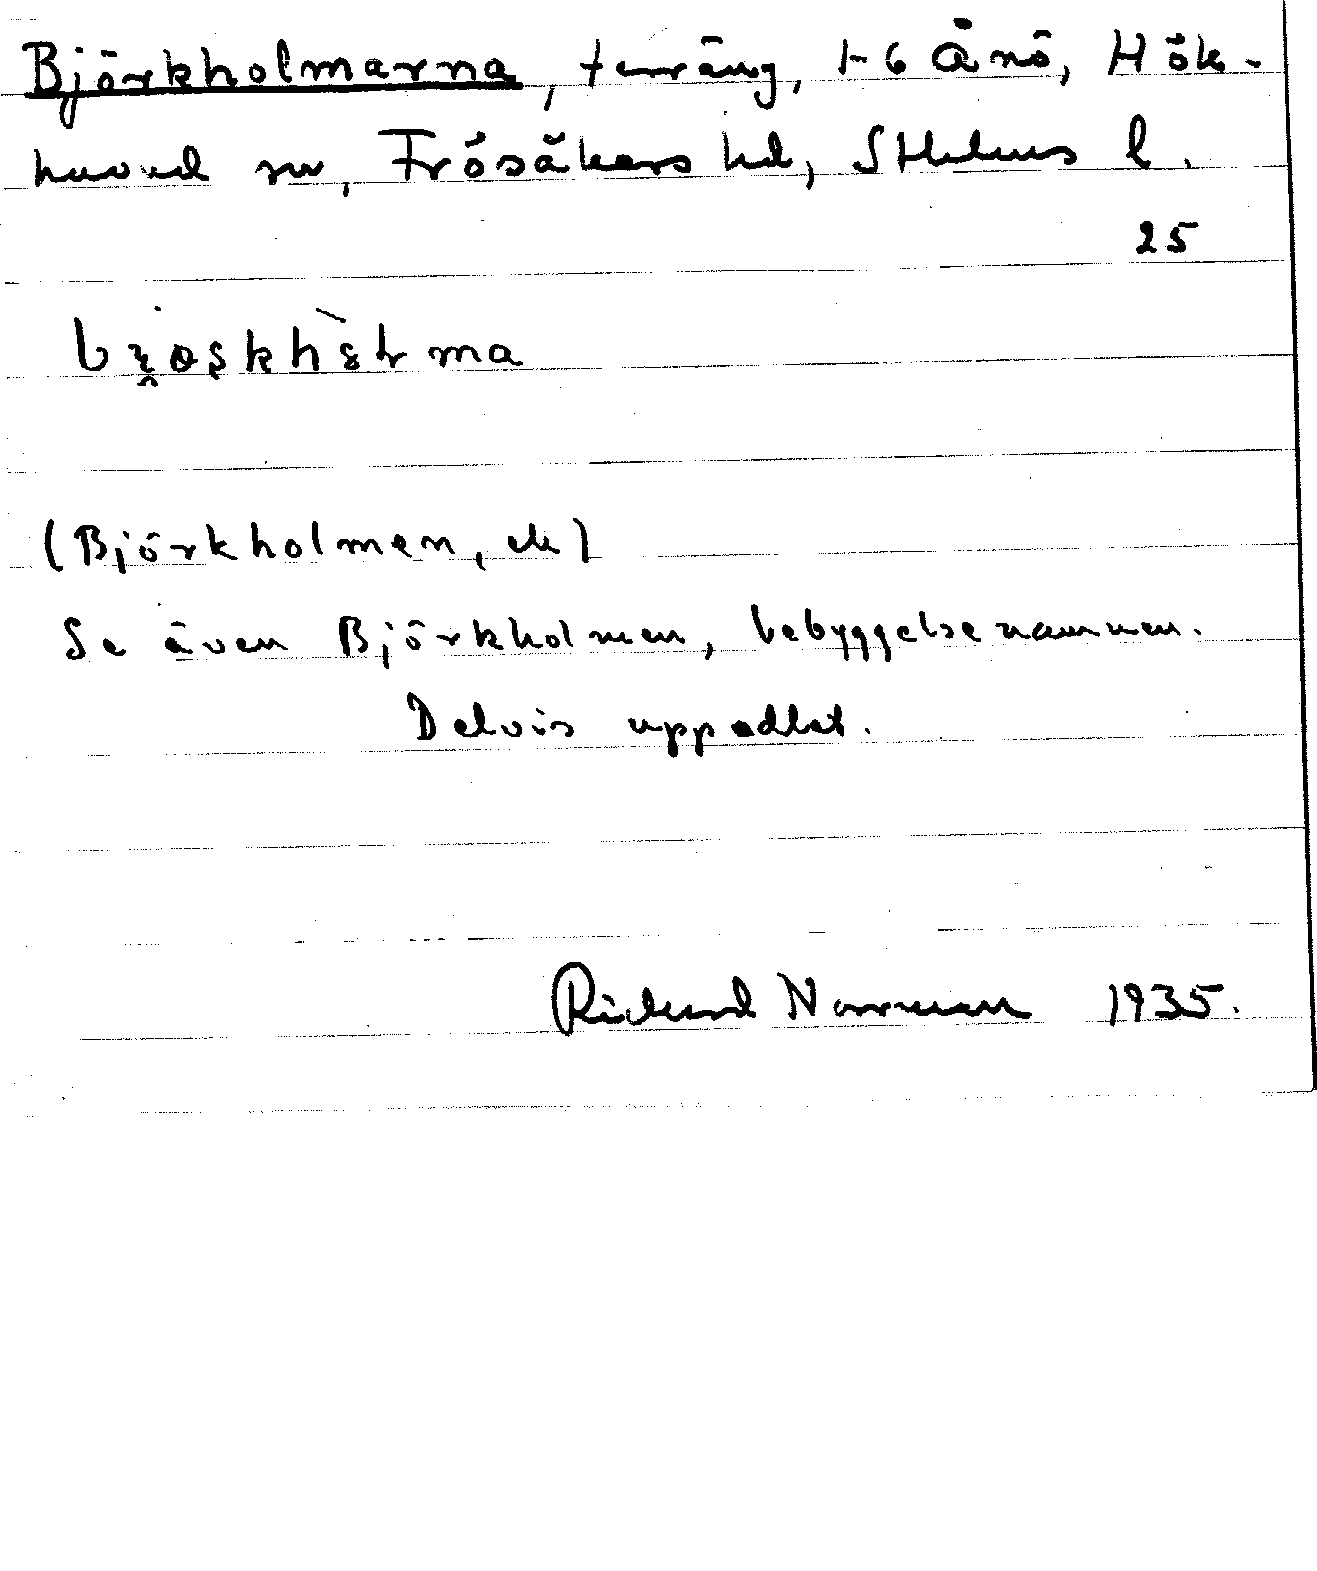 Björkholmarna, terräng, 1-6 Ånö, Hök-
huvud sn, Frösåkers hd, Sthlms l.
25
(Björkholmen, ek)
Se även Björkholmen, bebyggelsenamnen.
Delvis uppodlat.
Richard Norrman 1935.